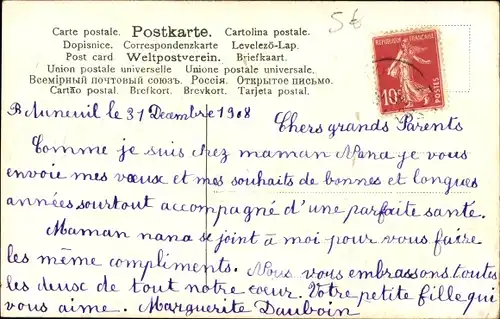 5€
Carte postale. Postkarte. Cartolina postale.
Dopisnice. Correspondenzkarte Levelező-Lap.
Post card Weltpostverein. Briefkaart.
Union postale universelle. Unione postale universale.
Всемірный почтовый союзъ. Россія. Открытое письмо.
Cartão postal. Brefkort. Brevkort. Tarjeta postal.
REPUBLIQUE FRANÇAISE
10c
POSTES
Auneuil le 31 Decembre 1908
Chers grands Parents
Comme je suis chez maman Nana je vous
envoie mes vœux et mes souhaits de bonnes et longues
années surtout accompagné d'une parfaite santé.
Maman nana se joint à moi pour vous faire
les même compliments. Nous vous embrassons toutes
les deux de tout notre cœur. Votre petite fille qui
vous aime. Marguerite Dauboin